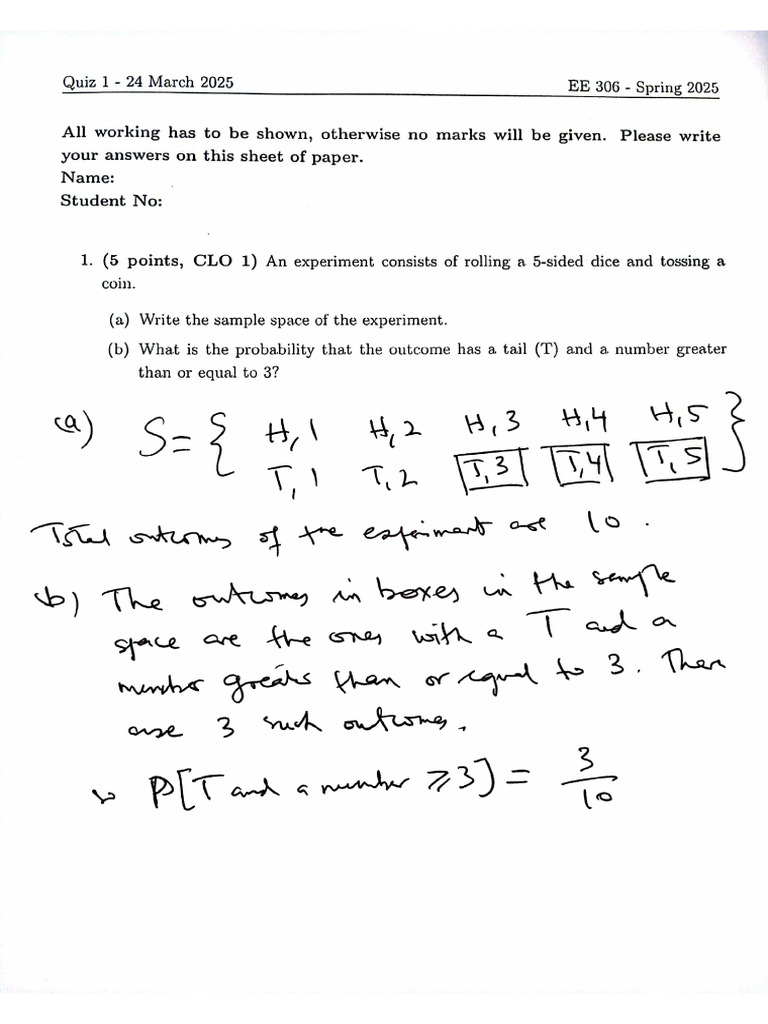 Quiz 1 - 24 March 2025 EE 306 - Spring 2025
All working has to be shown, otherwise no marks will be given. Please write
your answers on this sheet of paper.
Name:
Student No:
1. (5 points, CLO 1) An experiment consists of rolling a 5-sided dice and tossing a
coin.
(a) Write the sample space of the experiment.
(b) What is the probability that the outcome has a tail (T) and a number greater
than or equal to 3?
(a) S = { H,1 H,2 H,3 H,4 H,5 }
T,1 T,2 T,3 T,4 T,5
Total outcomes of the experiment are 10.
(b) The outcomes in boxes in the sample
space are the ones with a T and a
number greater than or equal to 3. There
are 3 such outcomes.
so P[T and a number ⩾3] = 3/10